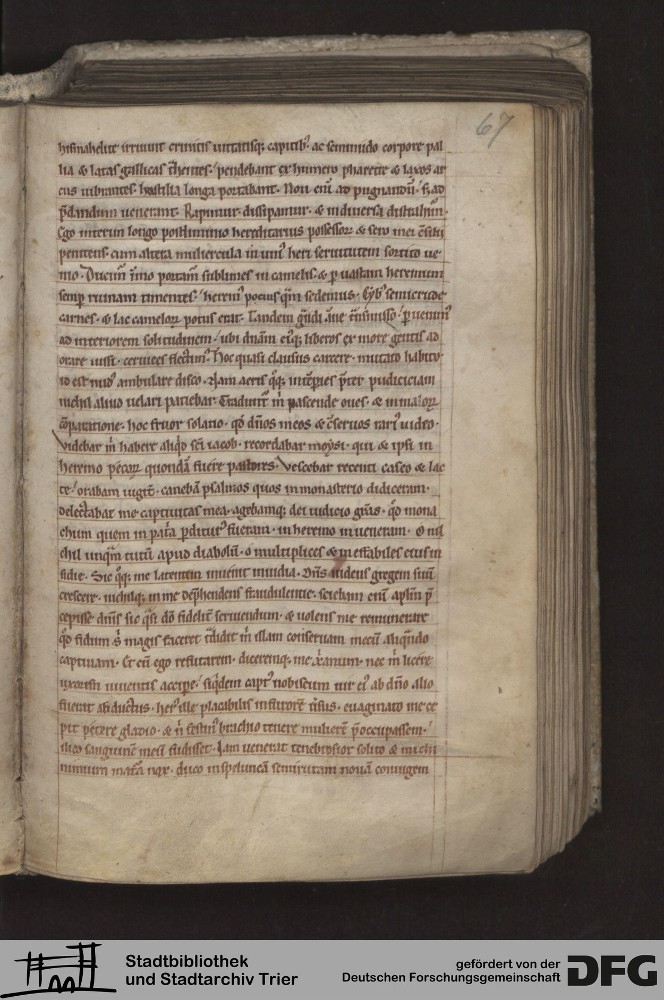 67
hismahelite irruunt crinitis uittatisq; capitib; ac seminudo corpore pal
lia & latas gallicas trahentes. pendebant ex humero pharetre & laxos ar
cus uibrantes. hastilia longa portabant. Non eni ad pugnandu. s; ad
p̄dandum uenerant. Rapimur. dissipamur. & in diuersa distrahim̄.
Ego interim longo postliminio hereditarius possessor & sero mei c̄silii
penitens. cum altera muliercula in uni' heri seruitutem sortito ue
nio. Ducim̄ immo portam̄ sublimes in camelis. & p uastam heremum
semp ruinam timentes. herem' pocius q̄m sedemus. Cyb' semicrude
carnes. & lac camelor̨ potus erat. Tandem grandi amne transmisso. puenim'
ad interiorem solitudinem. ubi dnam eiq; liberos ex more gentis ad
orare iussi. ceruices flectim'. Hoc quasi clausus carcere. mutato habitu
id est nud' ambulare disco. Nam aeris q̄q; intēperies p̄ter pudiciciam
nichil aliud uelari patiebat. Traduntr m̄ pascende oues. & in malor̨
c̄paratione. hoc fruor solatio. qd dn̄os meos & c̄seruos rari' uideo.
Videbar m̄ habere aliqd sc̄i iacob. recordabar moysi. qui & ipsi in
heremo pecor̨ quondā fuere pastores. Vescebar recenti caseo & lac
te. orabam iugit̄. canebā psalmos quos in monasterio didiceram.
delectabat me captiuitas mea. agebamq; dei iudicio grās. qd mona
chum quem in patria pditur' fueram. in heremo inueneram. O ni
chil unq̄m tutū apud diabolū. o multiplices & ineffabiles eius in
sidie. Sic q̄q; me latentem inuenit inuidia. Dn̄s uidens gregem suū
crescere. nichilq; in me dep̄hendens fraudulentie. sciebam eni aplm p̄
cepisse. dnis sic q̄si dō fidelit̄ seruiendum. & uolens me remunerare
q̊ fidum s̄ magis faceret. tradidit m̄ illam conseruam mecū aliq̄ndo
captiuam. Et cū ego refutarem. diceremq; me xp̄ianum. nec m̄ licere
uxorem uiuentis accipe. siq̄dem capt' nobiscum uir ei' ab dn̄o alio
fuerat abductus. her' ille placabilis in furorē uersus. euaginato me ce
pit petere gladio. & n̄ festin' brachio tenere mulierē p̄occupassem.
ilico sanguinē meū fudisset. Jam uenerat tenebrosior solito & michi
nimium matura nox. duco in speluncā semirutam nouā coniugem
Stadtbibliothek
und Stadtarchiv Trier
gefördert von der
Deutschen Forschungsgemeinschaft
DFG